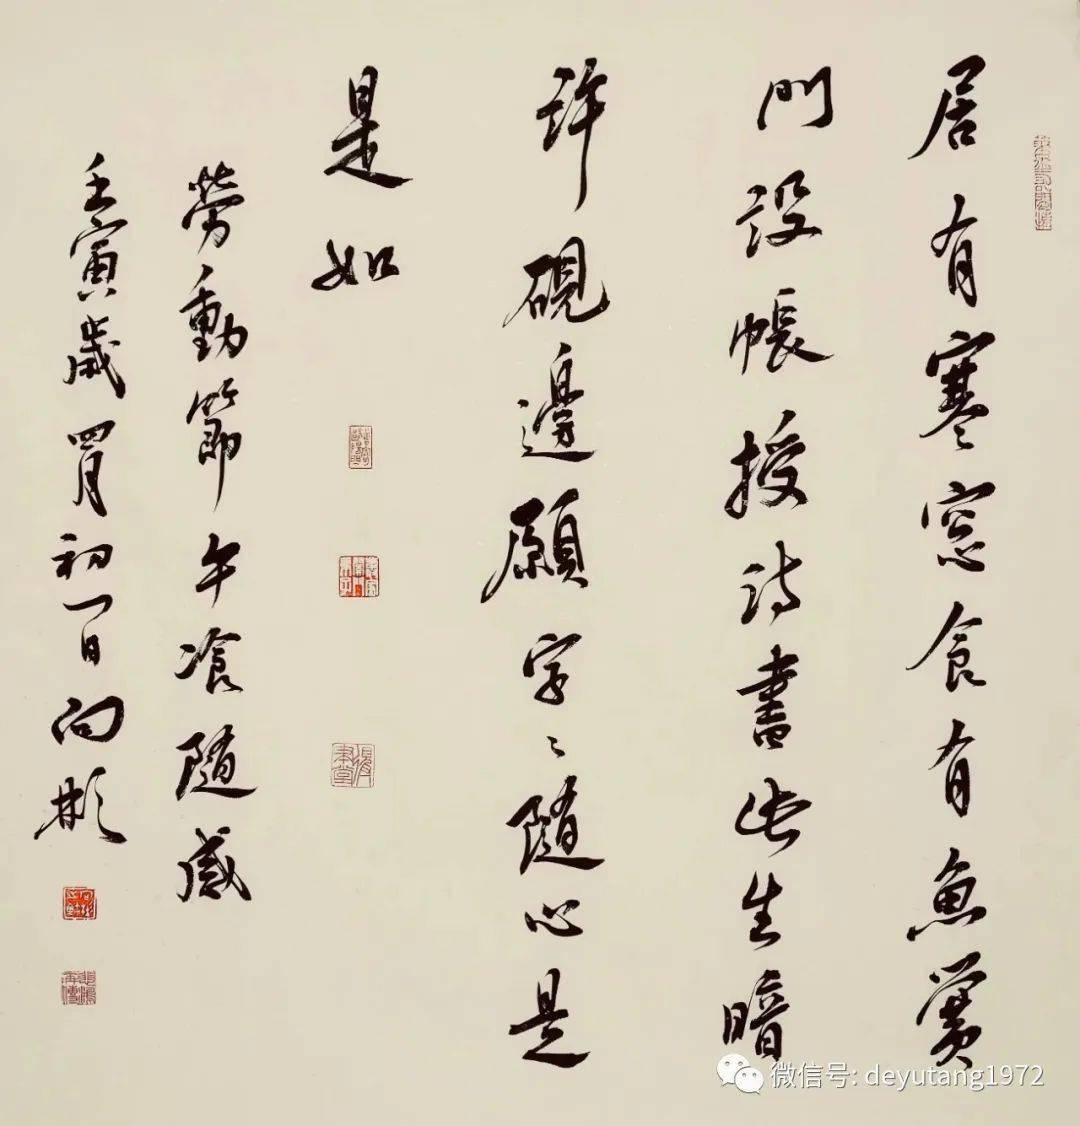 居有寒窓食有魚黌
門設帳授詩書此生暗
許硯邊願字〻隨心是
是如
勞動節午飡隨感
壬寅歲四月初一日向彬
微信号: deyutang1972